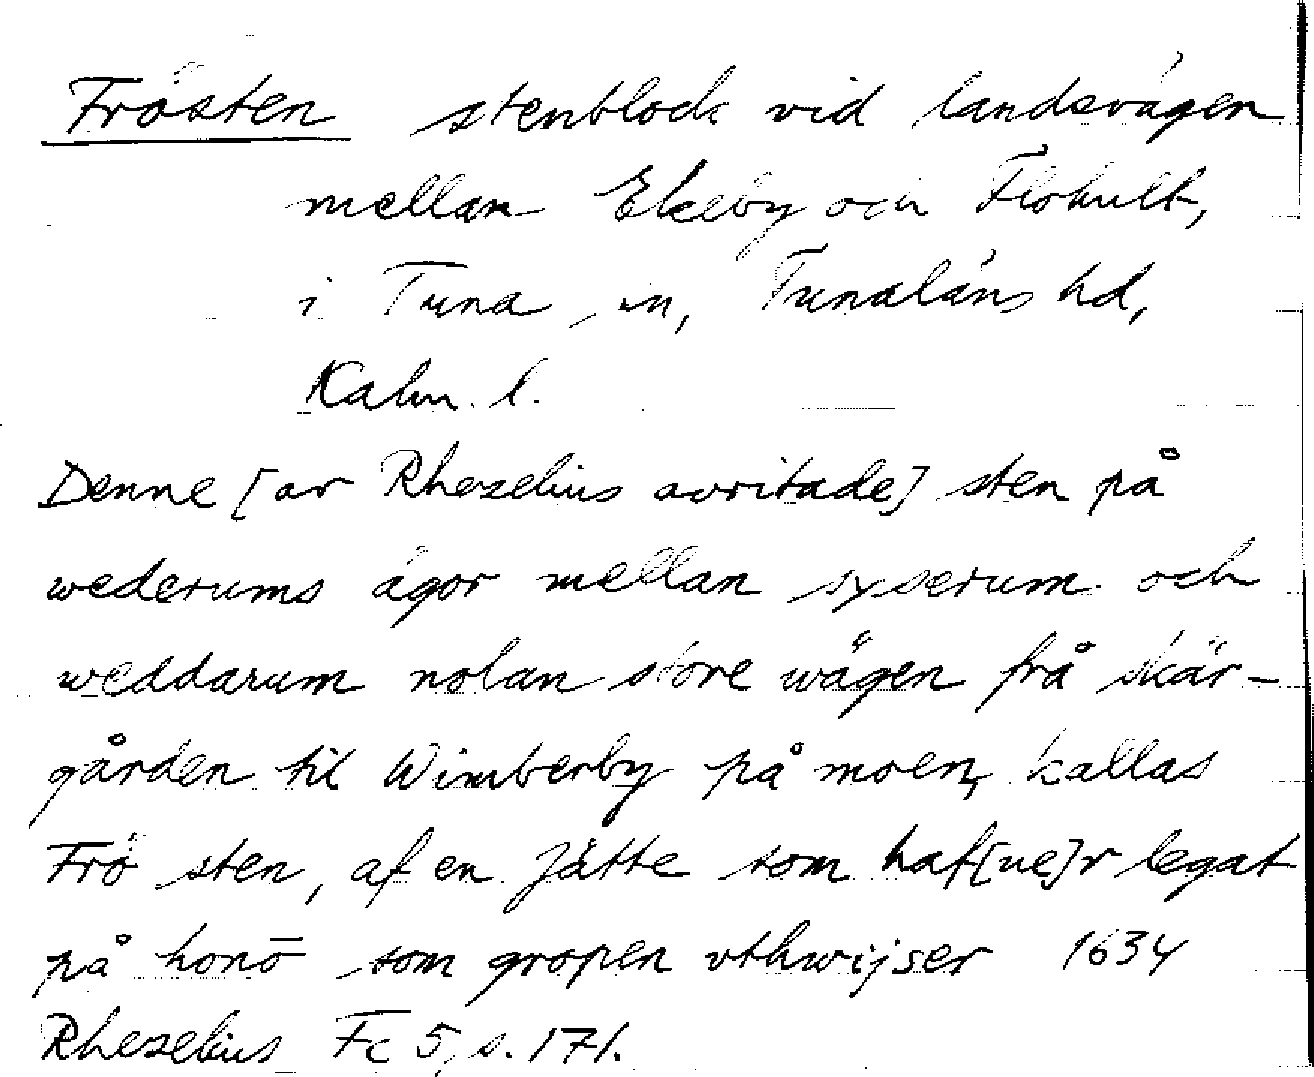 Frösten stenblock vid landsvägen
mellan Ekeby och Flohult,
i Tuna sn, Tunaläns hd,
Kalm. l.
Denne [av Rhezelius avritade] sten på
wederums ägor mellan syserum och
weddarum nolan store wägen frå skär-
gården til Wimberby på moen, kallas
Frö sten, af en Jätte som haf[ue]r legat
på honō som gropen vthwijser 1634
Rhezelius Fc 5, s. 171.